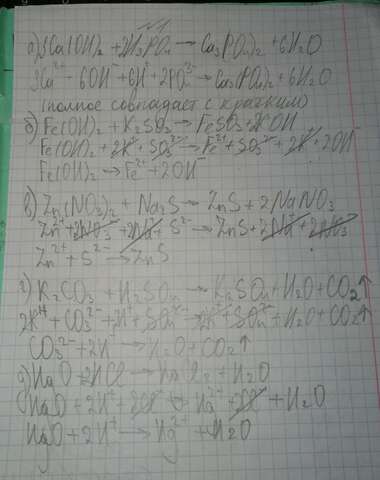 N1
а) 3Ca(OH)₂ + 2H₃PO₄ → Ca₃(PO₄)₂ + 6H₂O
3Ca²⁺ + 6OH⁻ + 6H⁺ + 2PO₄³⁻ → Ca₃(PO₄)₂ + 6H₂O
(полное совпадает с кратким)
б) Fe(OH)₂ + K₂SO₃ → FeSO₃ + 2KOH
Fe(OH)₂ + 2K⁺ + SO₃²⁻ → Fe²⁺ + SO₃²⁻ + 2K⁺ + 2OH⁻
Fe(OH)₂ → Fe²⁺ + 2OH⁻
в) Zn(NO₃)₂ + Na₂S → ZnS + 2NaNO₃
Zn²⁺ + 2NO₃⁻ + 2Na⁺ + S²⁻ → ZnS + 2Na⁺ + 2NO₃⁻
Zn²⁺ + S²⁻ → ZnS
г) K₂CO₃ + H₂SO₄ → K₂SO₄ + H₂O + CO₂↑
2K⁺ + CO₃²⁻ + 2H⁺ + SO₄²⁻ → 2K⁺ + SO₄²⁻ + H₂O + CO₂↑
CO₃²⁻ + 2H⁺ → H₂O + CO₂↑
д) HgO + 2HCl → HgCl₂ + H₂O
HgO + 2H⁺ + 2Cl⁻ → Hg²⁺ + 2Cl⁻ + H₂O
HgO + 2H⁺ → Hg²⁺ + H₂O